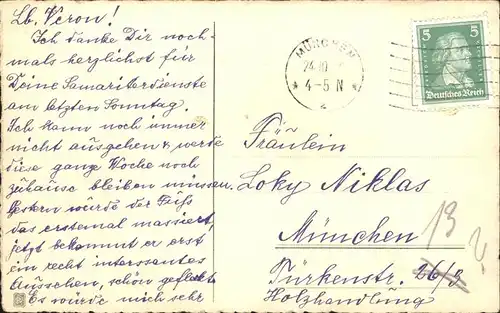 Lb. Veron!
Ich danke Dir noch-
mals herzlichst für
Deine Samariterdienste
am letzten Sonntag.
Ich kann noch immer
nicht ausgehen & werde
diese ganze Woche noch
zuhause bleiben müssen.
Gestern wurde der Fuß
das erstemal massiert,
jetzt bekommt er erst
ein recht interessantes
Aussehen, schön gefleckt.
Es würde mich sehr
MÜNCHEN
24.10
4-5 N
2
5 5
Deutsches Reich
Fräulein
Loky Niklas
München
13
Türkenstr. 26/3
Holzhandlung